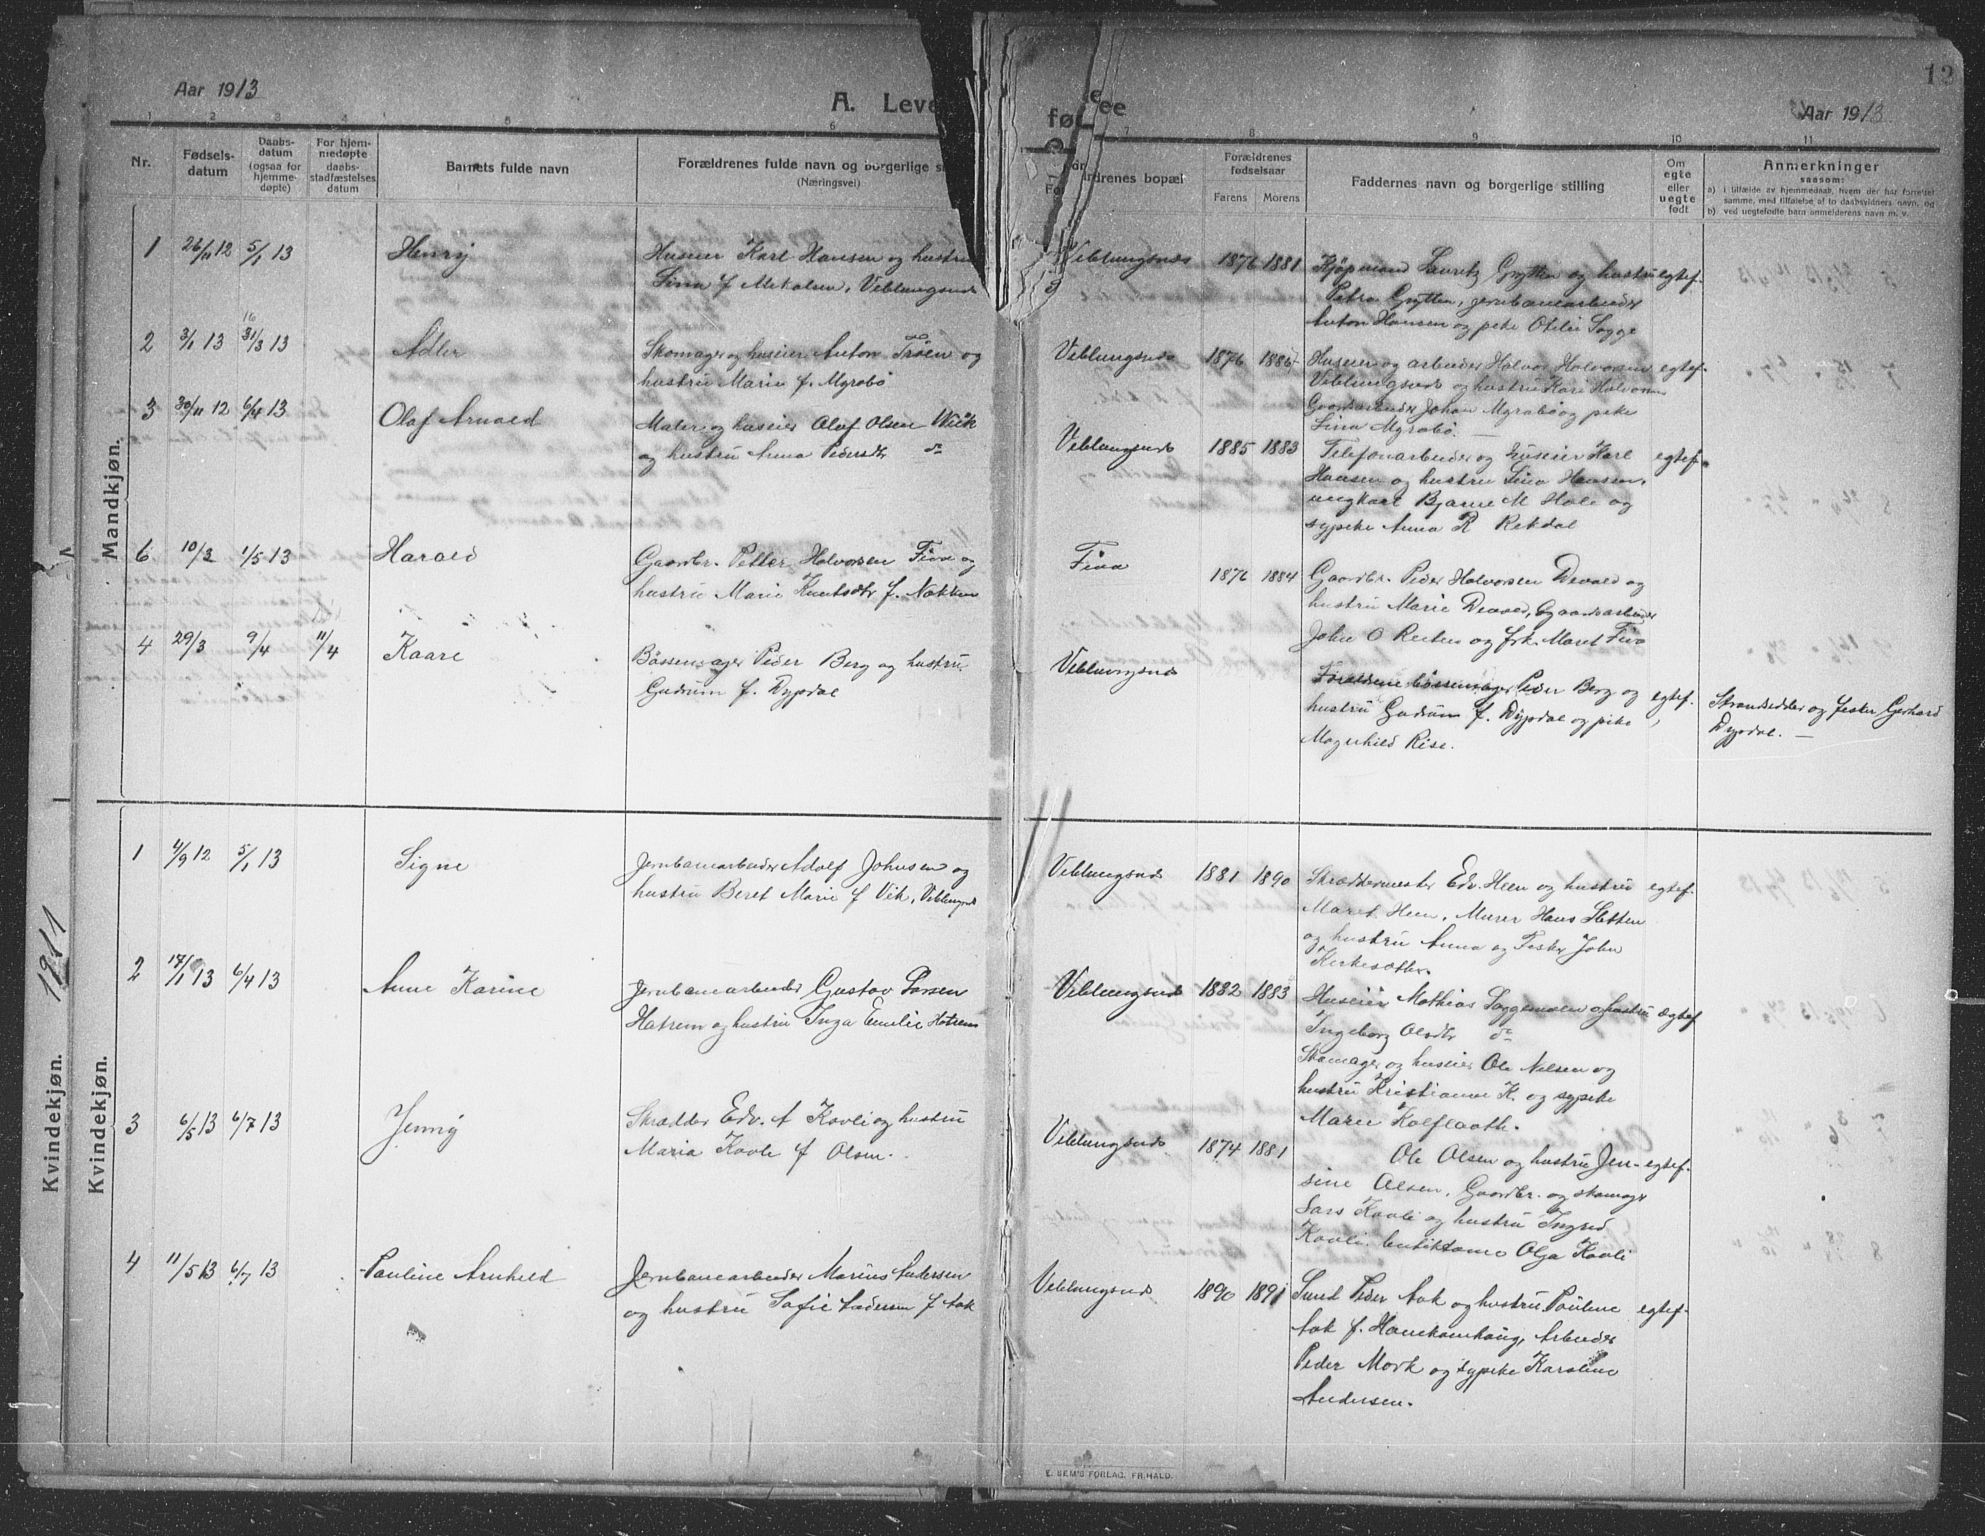 Aar 1913
A. Leve
1 2 3 4 5 6
Nr.
Fødsels-
datum
Daabs-
datum
(ogsaa for
hjemme-
døpte)
For hjem-
medøpte
daabs-
stadfæstelses
datum
Barnets fulde navn
Forældrenes fulde navn og borgerlige s
(Næringsvei)
Mandkjøn.
1 26/11 12 5/1 13 Henry Huseier Karl Hansen og hustru
Lina f Mikalsen, Veblungsnds
2 3/1 13 16 31/3 13 Adler Skomager og huseier Anton Trøen og
hustru Marie f. Mgrabø
3 30/11 12 6/4 13 Olaf Arnold Maler og huseier Olaf Olsen Wiik
og hustru Anna Pedersdtr do
6 10/3 1/5 13 Harald Gaardbr. Petter Halvorsen Fiva og
hustru Marie Knutsdtr f. Nakken
4 29/3 9/4 11/4 Kaare Bössemager Peder Berg og hustru
Gudrun f. Dypdal
Kvindekjøn.
1 4/9 12 5/1 13 Signe Jernbanearbeider Adolf Johnsen og
hustru Beret Marie f Vik, Veblungsnds
2 17/1 13 6/4 13 Anne Karine Jernbanearbeider Gustav Larsen
Hatrem og hustru Inga Emilie Hatrem
3 6/5 13 6/7 13 Jenny Skrædder Edv. A Kavli og hustru
Maria Kavli f Olsen.
4 11/5 13 6/7 13 Pauline Arnhild Jernbanearbeider Marius Andersen
og hustru Sofie Andersen f Aak
Kvindekjøn. 1911
12
fø ee
Aar 1913
7 8 9 10 11
rdrenes bopæl
Forældrenes
fødselsaar
Farens Morens
Faddernes navn og borgerlige stilling
Om
egte
eller
uegte
født
Anmerkninger
saasom:
a) i tilfælde av hjemmedaab, hvem der har forrettet
samme, med tilføielse af to daabsvidners navn, og
b) ved uegtefødte barn anmelderens navn m. v.
Veblungsnds 1876 1881 Kjøpmand Lauritz Grytten og hustru egtef.
Petra Grytten, jernbanearbeider
Anton Hansen og pike Otelie Sogge
Veblungsnds 1876 1886 Huseier og arbeider Halvor Halvorsen egtef.
Veblungsnds og hustru Kari Halvorsen
Gaardarbeider Johan Mgrabø og pike
Lina Mgrabø.
Veblungsnds 1885 1883 Telefonarbeider og huseier Karl egtef.
Hansen og hustru Lina Hansen,
ungkarl Bjarne M Hole og
sypike Anna R Rekdal
Fiva 1876 1884 Gaardbr. Peder Halvorsen Devold og
hustru Marie Devold, Gaardsarbeider
John O Reiten og frk. Maret Fiva
Veblungsnds Forældrene bössemager Peder Berg og egtef.
hustru Gudrun f. Dypdal og pike
Magnhild Rise.
Strandsidder og fisker Gerhard
Dypdal.
Veblungsnds 1881 1890 Skræddermester Edv. Heen og hustru egtef.
Maret Heen, Murer Hans Sletten
og hustru Anna og Fisker John
Kirkesæther.
Veblungsnds 1882 1883 Huseier Mathias Soggemoen og hustru egtef
Ingeborg Olsdtr do
Skomager og huseier Ole Nilsen og
hustru Kristianne K. og sypike
Marie Kolflaath.
Veblungsnds 1874 1881 Ole Olsen og hustru Jen- egtef.
sine Olsen, Gaardbr. og skomager
Lars Kavli og hustru Ingrid
Kavli. butikdame Olga Kavli
Veblungsnds 1890 1891 Smed Peder Aak og hustru Pauline egtef.
Aak f. Hanekamhaug, Arbeider
Peder Mork og sypike Karoline
Andersen.
E. SEM'S FORLAG, FR.HALD.